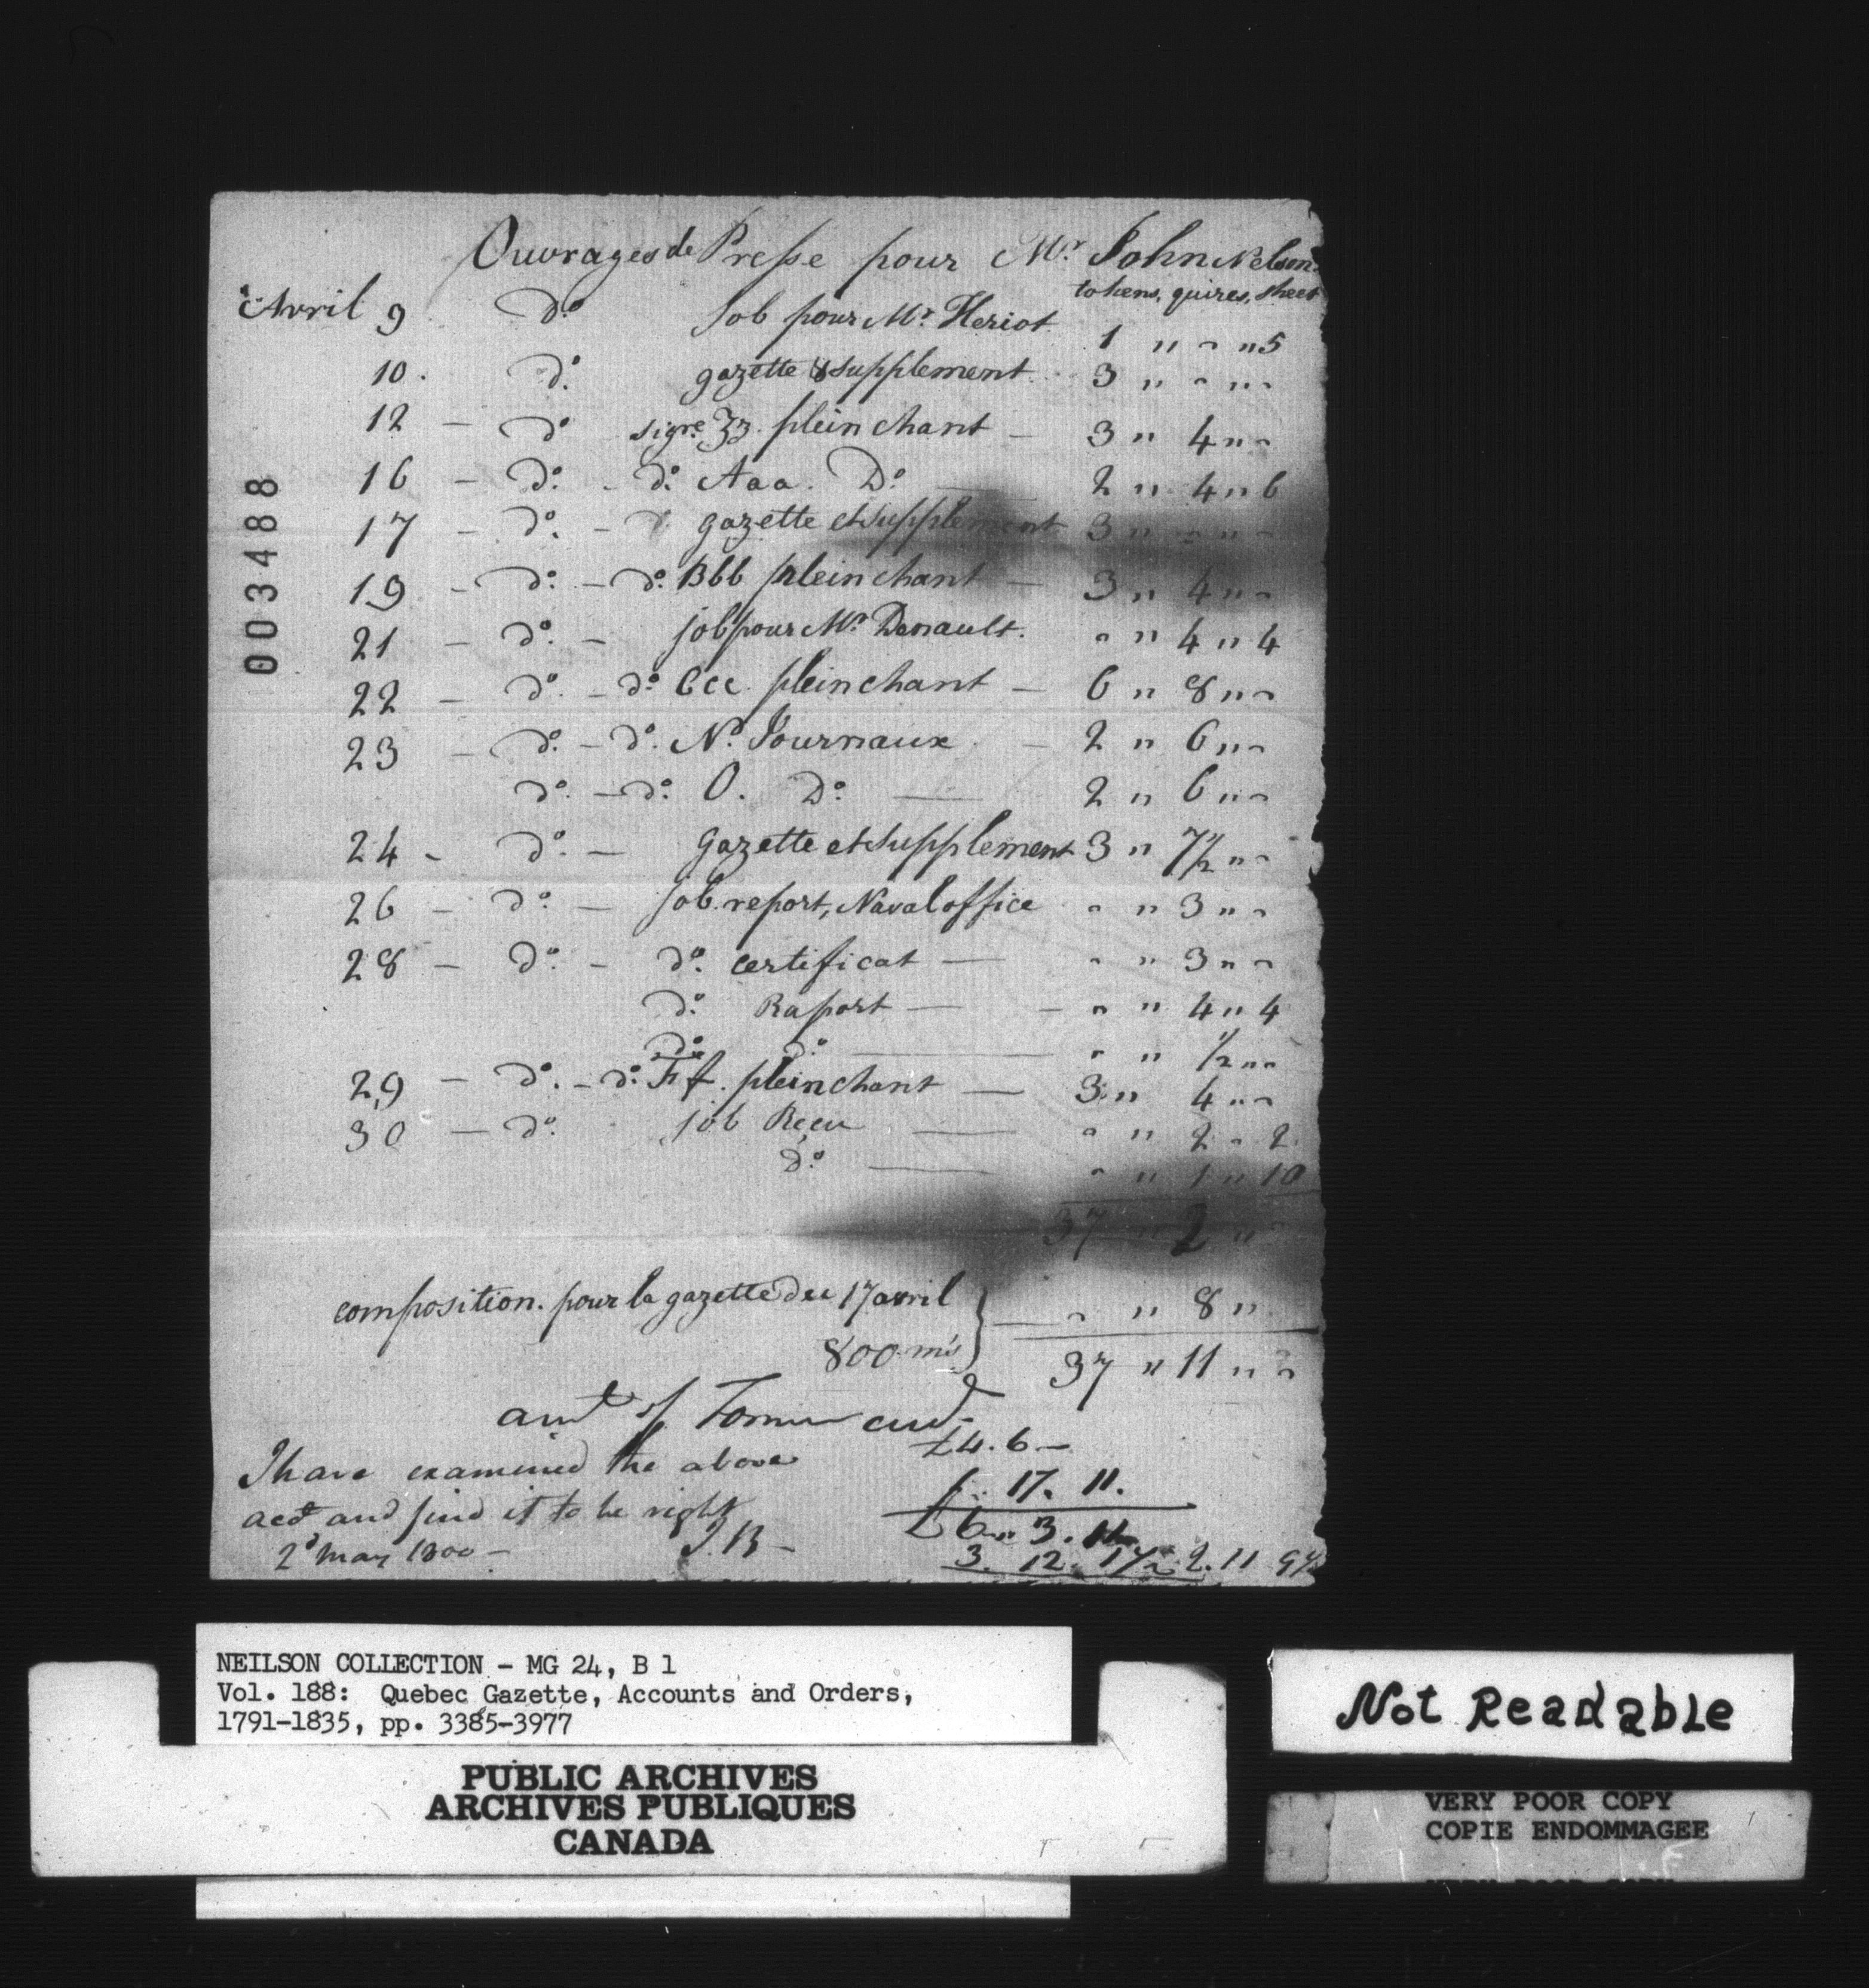 Ouvrages de Presse pour Mr. John Nelson
tokens, quires, sheet
Avril 9 do. Job pour Mr. Heriot 1 " - " 5
10. do. gazette & supplement 3 " - " -
12 - do signe. Zz. plein chant - 3 " 4 " -
16 - do. - do. Aaa. Do. - 2 " 4 " 6
17 - do. - d gazette et supplement 3 " - " -
19 - do. - do. Bbb plein chant - 3 " 4 " -
21 - do. - job pour Mr. Denault. - " 4 " 4
22 - do. - do. Ccc. plein chant - 6 " 8 " -
23 - do. - do. N. Journaux. - 2 " 6 " -
do. - do. O. Do. - 2 " 6 " -
24 - do. - gazette et supplement 3 " 7 1/2 " -
26 - do. - job. report, Naval office - " 3 " -
28 - do. - do. certificat - - " 3 " -
do. Raport - - - " 4 " 4
do. do. - - " 1/2 " -
29 - do. - do. Fff. plein chant - 3 " 4 " -
30 - do. job Reçu - - " 2 " 2.
do. - - " 1 " 10
37 " 2 " -
composition. pour la gazette du 17 avril
800 m's } - - " 8 "
37 " 11 " -
amt of former
£4. 6 -
I have examined the above
1 .. 17. 11.
acct and find it to be right
£6 " 3. 11
2d May 1800 - J.B -
3. 12. 2. 11
003488
NEILSON COLLECTION - MG 24, B 1
Vol. 188: Quebec Gazette, Accounts and Orders,
1791-1835, pp. 3385-3977
PUBLIC ARCHIVES
ARCHIVES PUBLIQUES
CANADA
Not Readable
VERY POOR COPY
COPIE ENDOMMAGEE